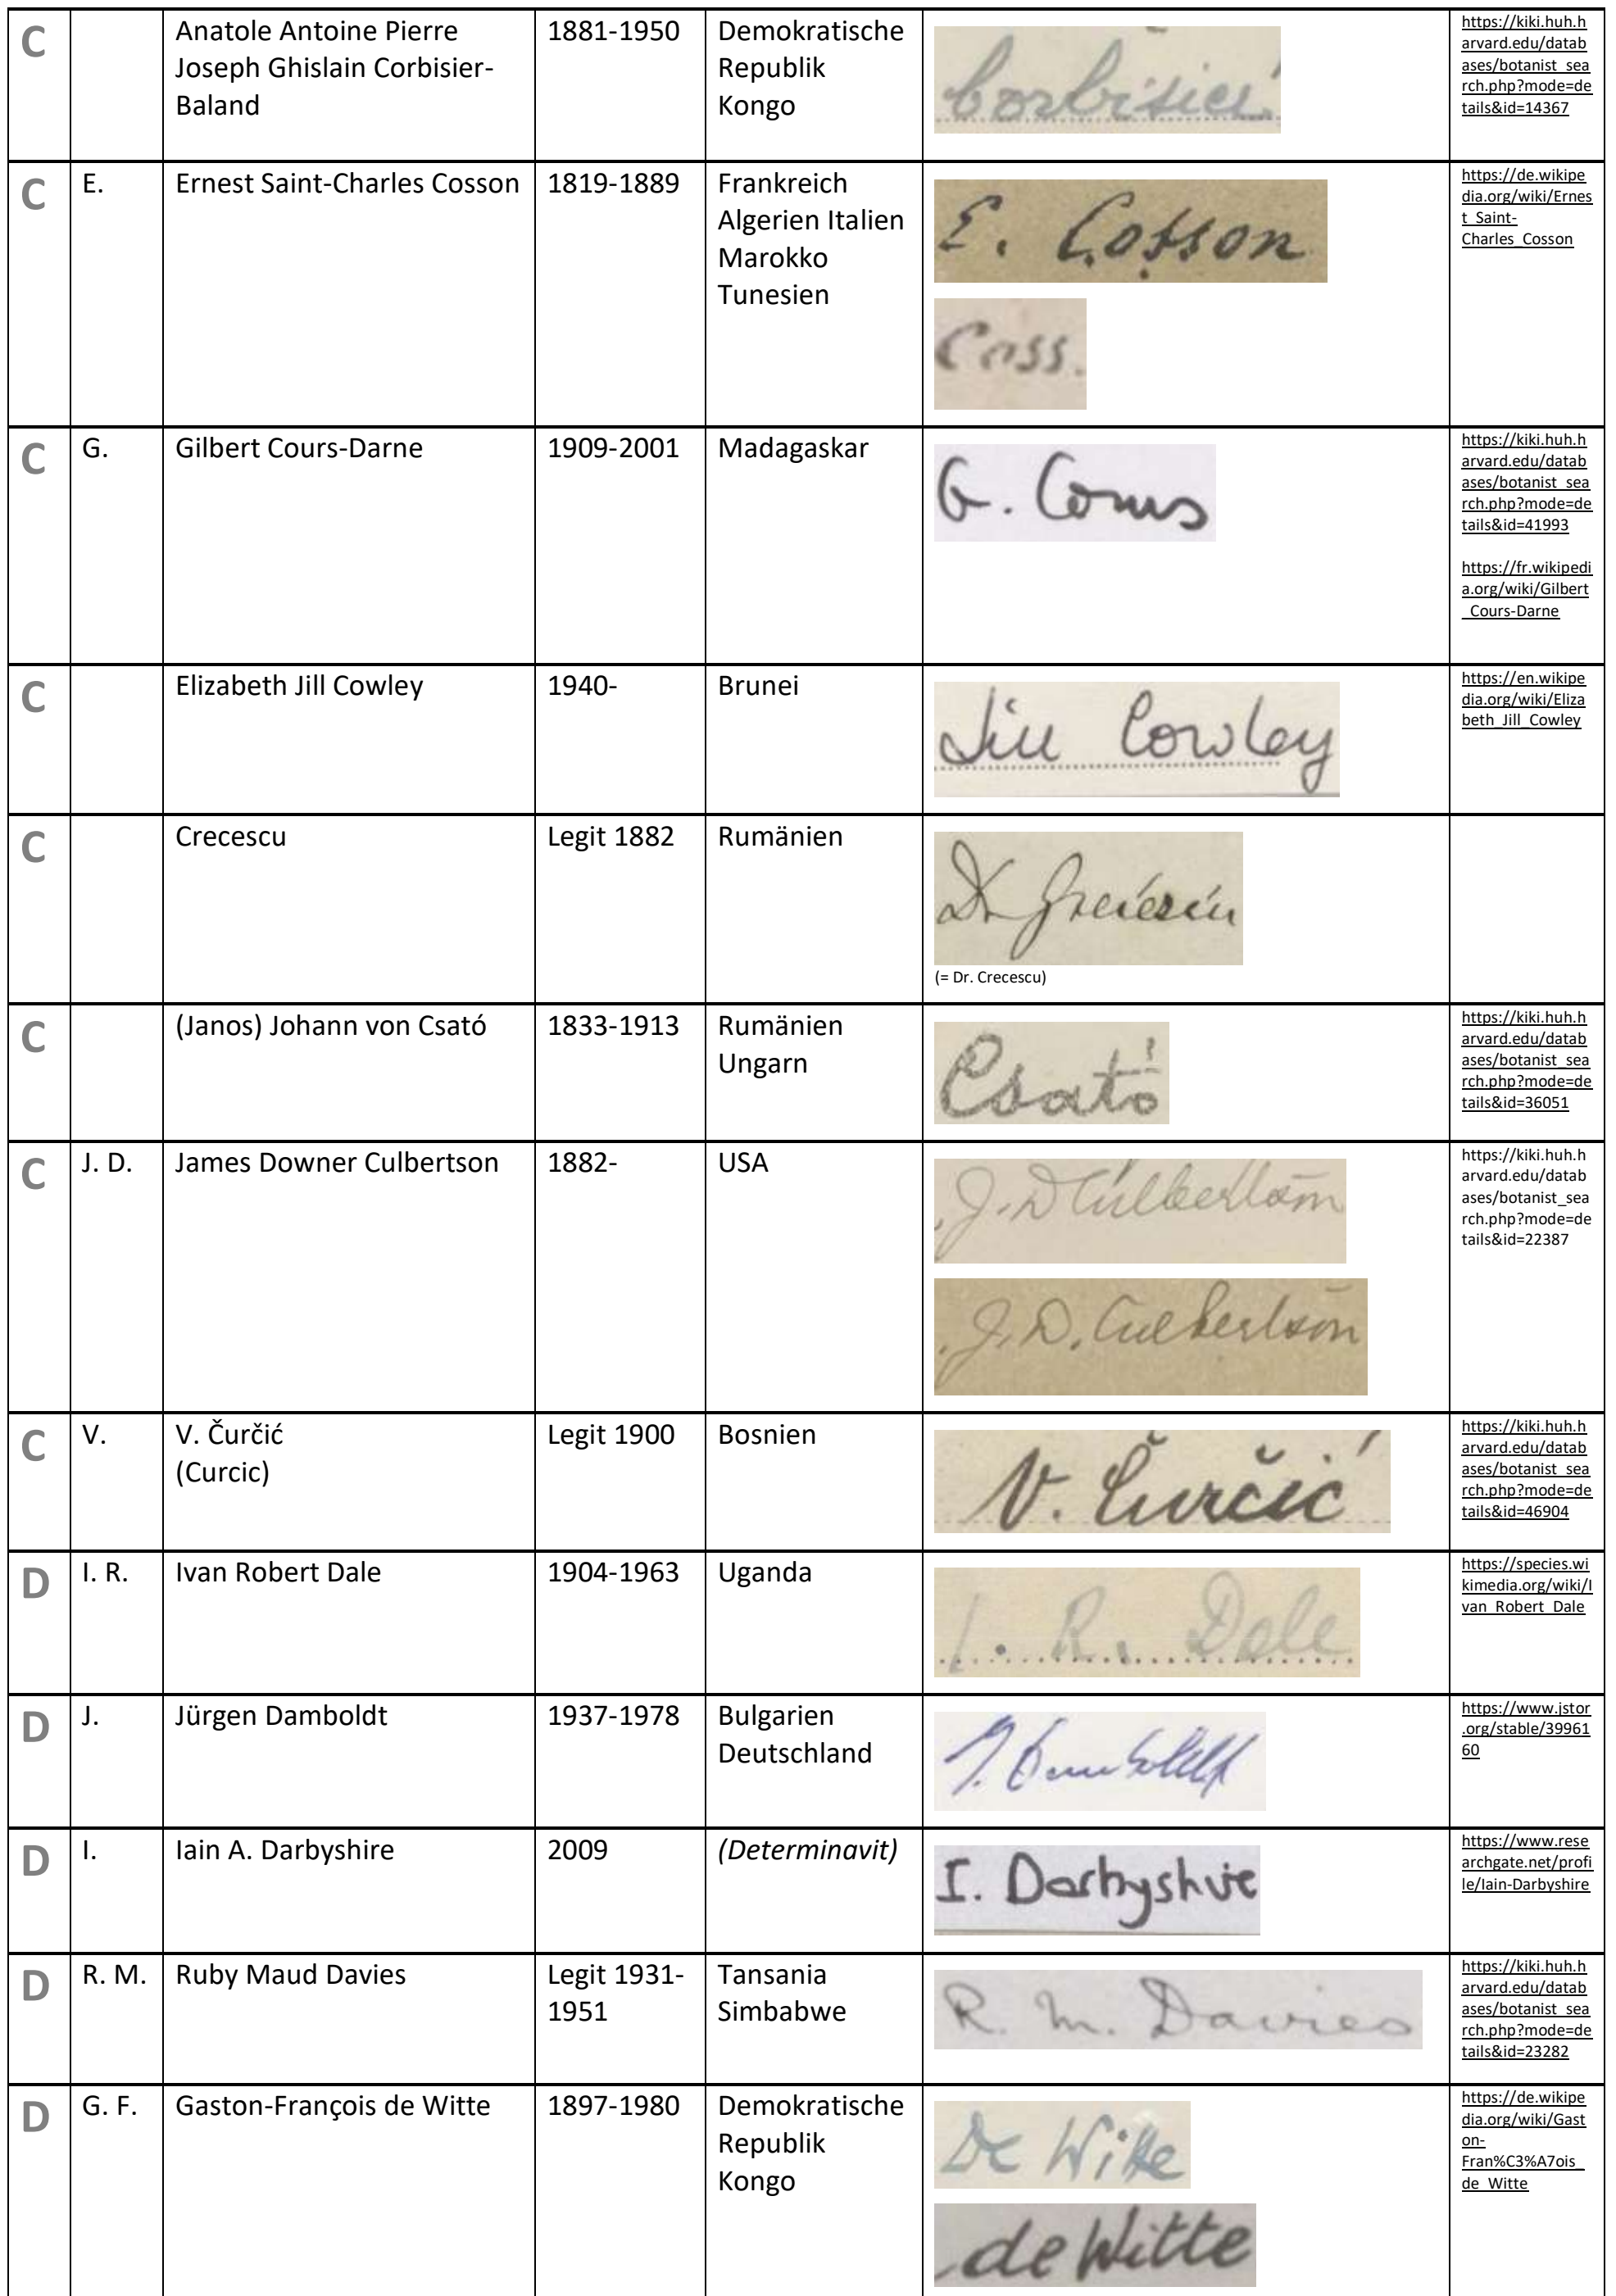 C
Anatole Antoine Pierre
Joseph Ghislain Corbisier-
Baland
1881-1950
Demokratische
Republik
Kongo
https://kiki.huh.h
arvard.edu/datab
ases/botanist_sea
rch.php?mode=de
tails&id=14367
C
E.
Ernest Saint-Charles Cosson
1819-1889
Frankreich
Algerien Italien
Marokko
Tunesien
E. Cosson
Coss.
https://de.wikipe
dia.org/wiki/Ernes
t_Saint-
Charles_Cosson
C
G.
Gilbert Cours-Darne
1909-2001
Madagaskar
G. Cours
https://kiki.huh.h
arvard.edu/datab
ases/botanist_sea
rch.php?mode=de
tails&id=41993
https://fr.wikipedi
a.org/wiki/Gilbert
_Cours-Darne
C
Elizabeth Jill Cowley
1940-
Brunei
Jill Cowley
https://en.wikipe
dia.org/wiki/Eliza
beth_Jill_Cowley
C
Crecescu
Legit 1882
Rumänien
Dr
(= Dr. Crecescu)
C
(Janos) Johann von Csató
1833-1913
Rumänien
Ungarn
Csató
https://kiki.huh.h
arvard.edu/datab
ases/botanist_sea
rch.php?mode=de
tails&id=36051
C
J. D.
James Downer Culbertson
1882-
USA
J. D Culbertson
J. D. Culbertson
https://kiki.huh.h
arvard.edu/datab
ases/botanist_sea
rch.php?mode=de
tails&id=22387
C
V.
V. Čurčić
(Curcic)
Legit 1900
Bosnien
V. Čurčić
https://kiki.huh.h
arvard.edu/datab
ases/botanist_sea
rch.php?mode=de
tails&id=46904
D
I. R.
Ivan Robert Dale
1904-1963
Uganda
I. R. Dale
https://species.wi
kimedia.org/wiki/I
van_Robert_Dale
D
J.
Jürgen Damboldt
1937-1978
Bulgarien
Deutschland
J. Damboldt
https://www.jstor
.org/stable/39961
60
D
I.
Iain A. Darbyshire
2009
(Determinavit)
I. Darbyshire
https://www.rese
archgate.net/profi
le/Iain-Darbyshire
D
R. M.
Ruby Maud Davies
Legit 1931-
1951
Tansania
Simbabwe
R. M. Davies
https://kiki.huh.h
arvard.edu/datab
ases/botanist_sea
rch.php?mode=de
tails&id=23282
D
G. F.
Gaston-François de Witte
1897-1980
Demokratische
Republik
Kongo
De Witte
de Witte
https://de.wikipe
dia.org/wiki/Gast
on-
Fran%C3%A7ois_
de_Witte